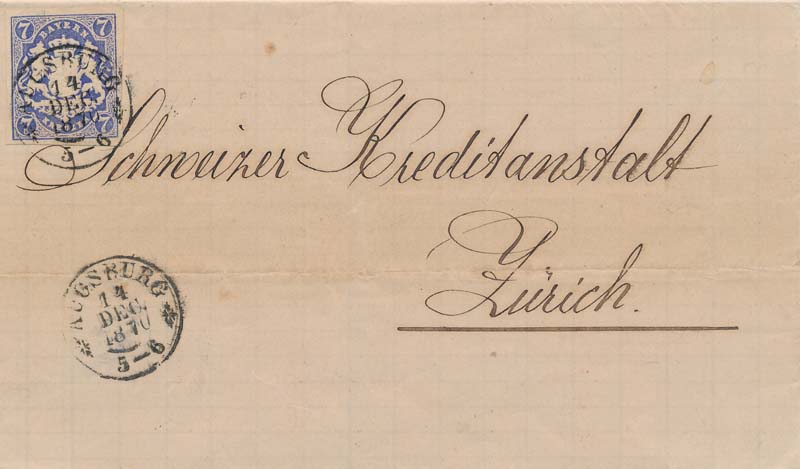 7 BAYERN 7
7 7
AUGSBURG
14
DEC.
1870
5-6
Schweizer Kreditanstalt
Zürich.
AUGSBURG
14
DEC.
1870
5-6